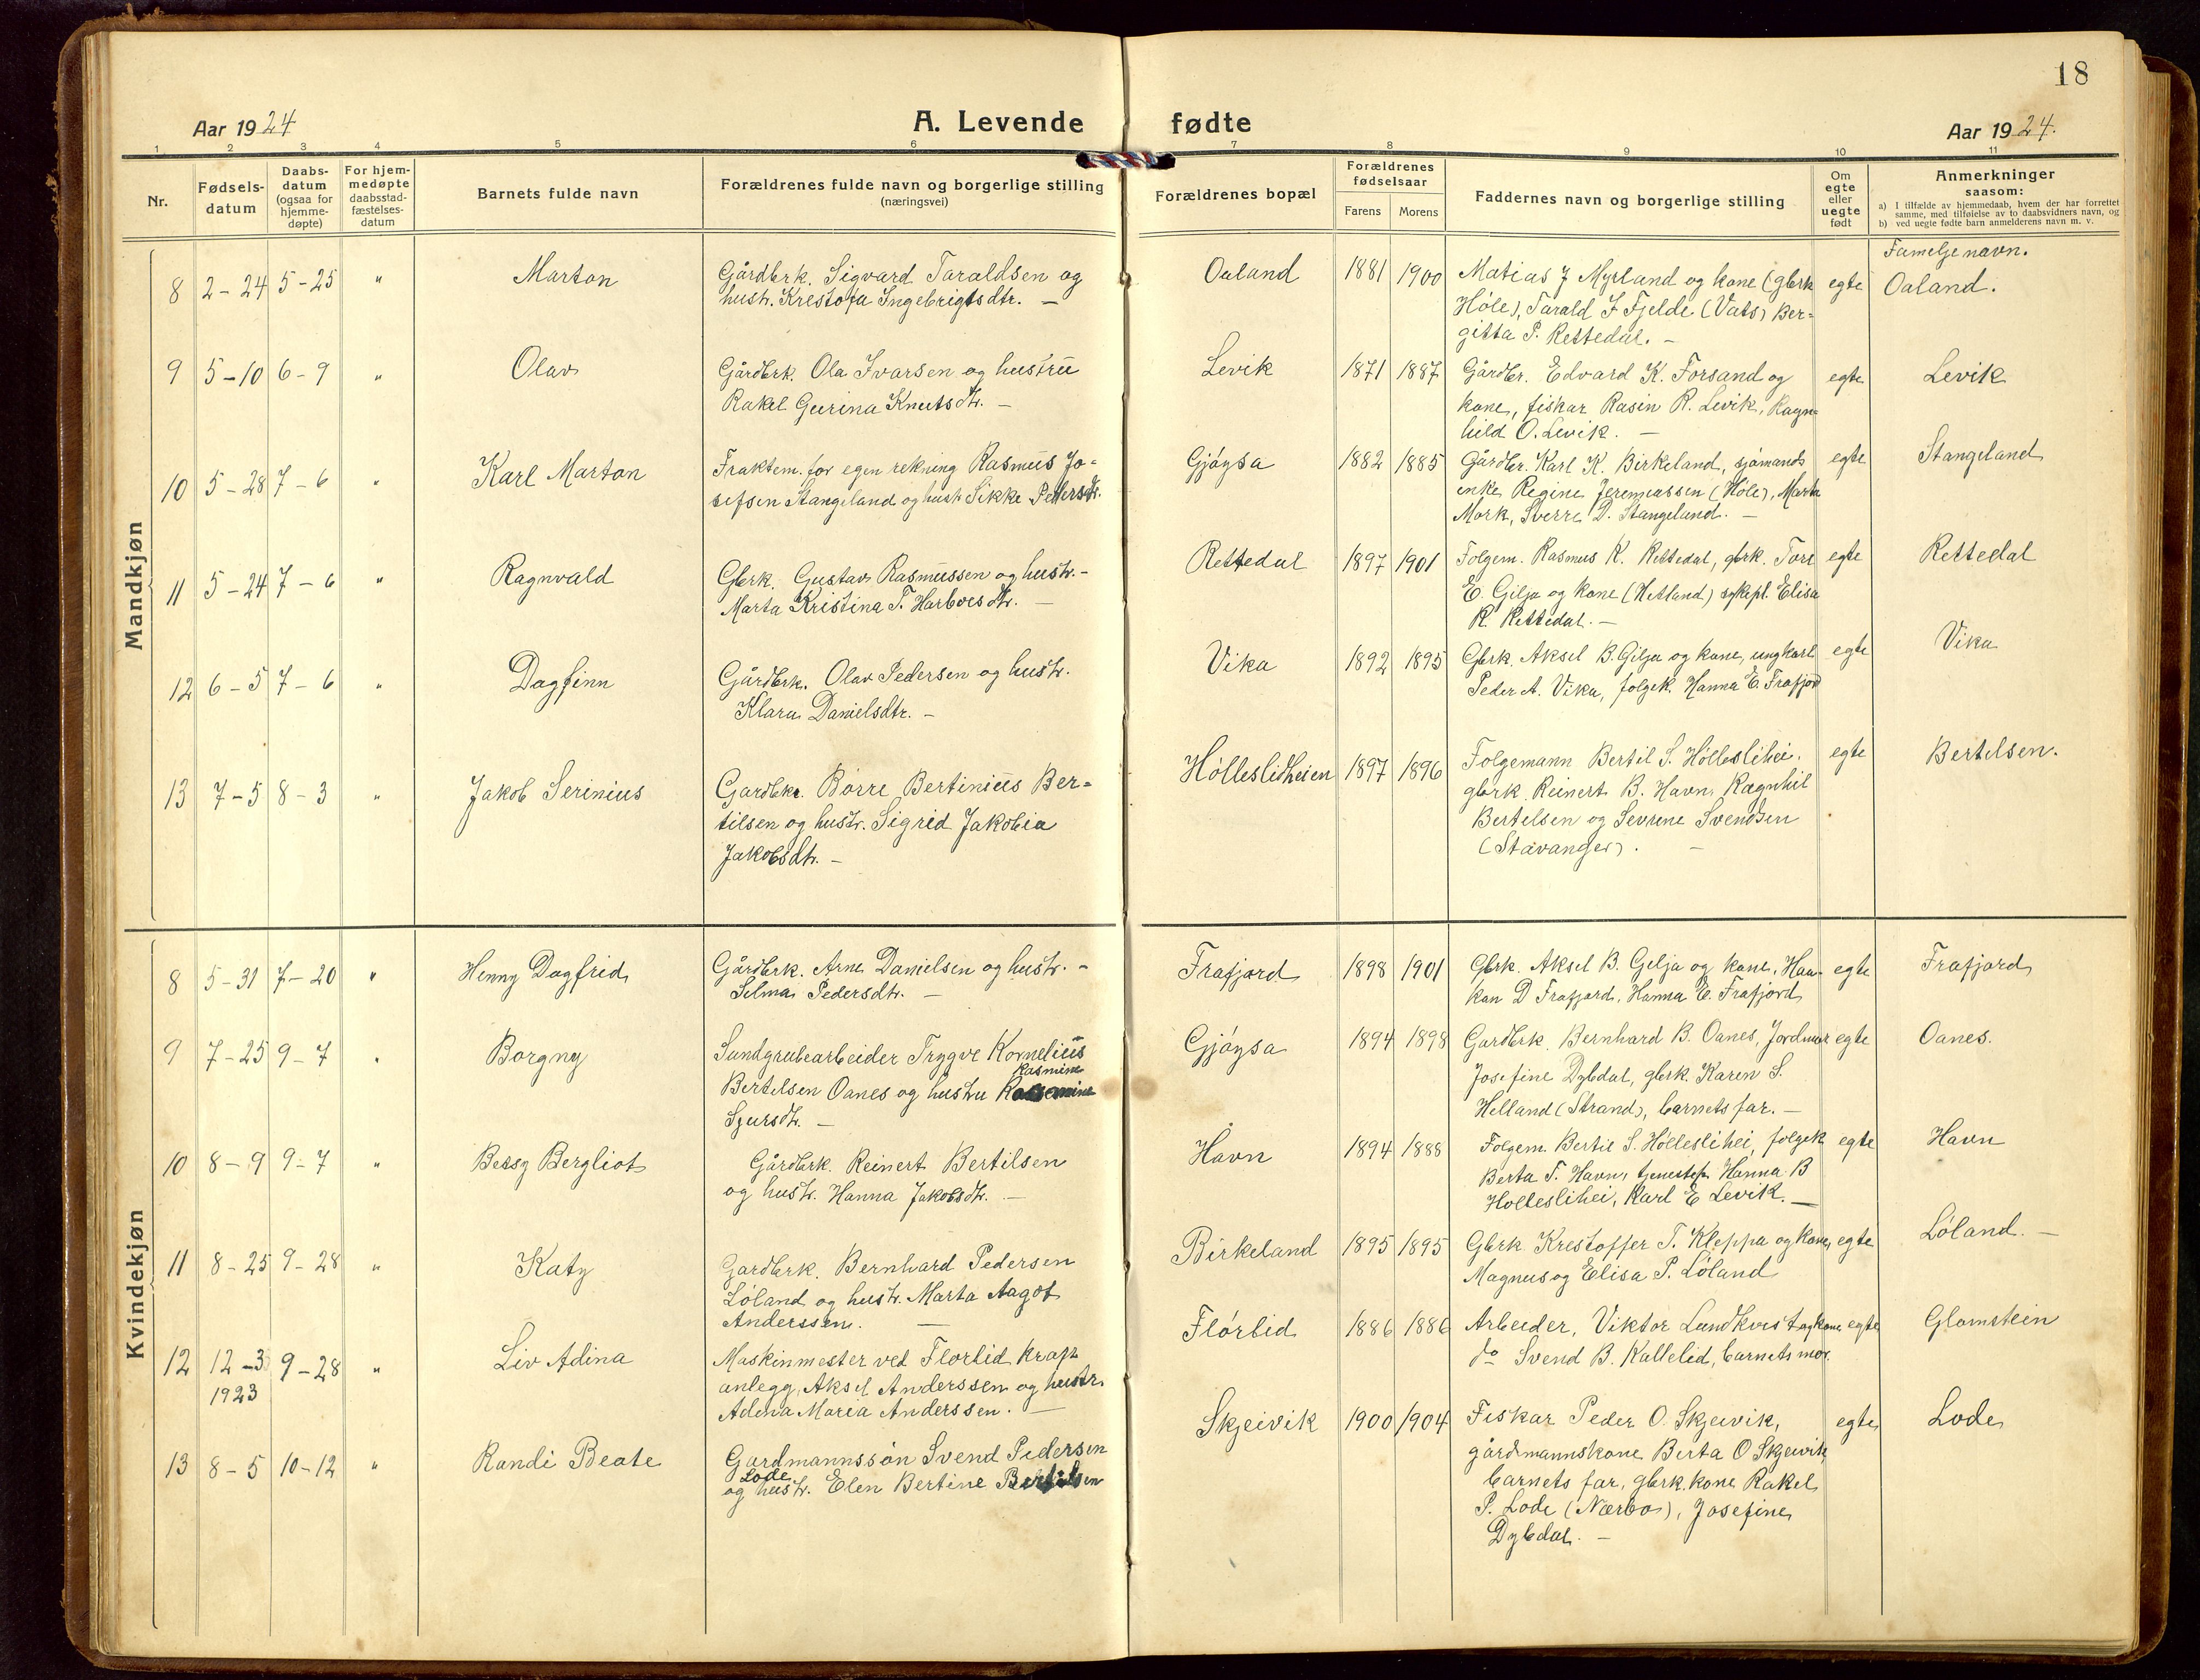 18
Aar 1924
A. Levende fødte
Aar 1924.
1 2 3 4 5 6 7 8 9 10 11
Nr.
Fødsels-
datum
Daabs-
datum
(ogsaa for
hjemme-
døpte)
For hjem-
medøpte
daabsstad-
fæstelses-
datum
Barnets fulde navn
Forældrenes fulde navn og borgerlige stilling
(næringsvei)
Forældrenes bopæl
Forældrenes
fødselsaar
Farens Morens
Faddernes navn og borgerlige stilling
Om
egte
eller
uegte
født
Anmerkninger
saasom:
a) I tilfælde av hjemmedaab, hvem der har forrettet
samme, med tilføielse av to daabsvidners navn, og
b) ved uegte fødte barn anmelderens navn m. v.
Mandkjøn
Familjenavn.
8 2-24 5-25 " Marton
Gårdbrk. Sigvard Taraldsen og
hustr. Krestofa Ingebrigtsdtr. —
Oaland 1881 1900
Matias J Myrland og kone (gbrk
Høle), Tarald J Fjelde (Vats) Ber-
gitta P. Rettedal. —
egte Oaland.
9 5-10 6-9 " Olav
Gårdbrk. Ola Ivarsen og hustru
Rakel Gurina Knutsdtr. —
Levik 1871 1887
Gårdbr. Edvard K. Forsand og
kone, fiskar Rasin R. Levik, Ragn-
hild O. Levik. —
egte Levik
10 5-28 7-6 " Karl Marton
Fraktem. for egen rekning Rasmus Jo-
sefsen Stangeland og hustr Sikke Pedersdtr.
Gjøysa 1882 1885
Gårdbr. Karl K. Birkeland, sjømands
enke Regine Jeremiassen (Høle), Marta
Mørk, Sverre D. Stangeland. —
egte Stangeland
11 5-24 7-6 " Ragnvald
Gbrk. Gustav Rasmussen og hustr. -
Marta Kristina T. Harboesdtr. —
Rettedal 1897 1901
Folgem. Rasmus K. Rettedal, gbrk. Tore
E. Gilja og kone (Hetland) sykepl. Elisa
R. Rettedal. —
egte Rettedal
12 6-5 7-6 " Dagfinn
Gårdbrk. Olav Pedersen og hustr.
Klara Danielsdtr. —
Vika 1892 1895
Gbrk. Aksel B. Gilja og kone, ungkarl
Peder A. Vika, folgek. Hanna E. Frafjord
egte Vika
13 7-5 8-3 " Jakob Serinius
Gardbkr. Børre Bertinius Ber-
tilsen og hustr. Sigrid Jakobia
Jakobsdtr. —
Hølleslidheien 1897 1896
Folgemann Bertil S. Hølleslihei,
gbrk Reinert B. Havn, Ragnhil
Bertelsen og Sevrine Svendsen
(Stavanger). —
egte Bertelsen.
Kvindekjøn
8 5-31 7-20 " Henny Dagfrid
Gårdbrk. Arne Danielsen og hustr. -
Selma Pedersdtr. —
Frafjord 1898 1901
Gbrk. Aksel B. Gilja og kone, Haa-
kon D Frafjord, Hanna E. Frafjord
egte Frafjord
9 7-25 9-7 " Borgny
Sandgrubearbeider Trygve Kornelius
Rasmine
Bertelsen Oanes og hustru
Sjursdtr. —
Gjøysa 1894 1898
Gardbrk. Bernhard B. Oanes, Jordmor
Josefine Dybdal, gbrk. Karen S.
Helland (Strand), barnets far. —
egte Oanes.
10 8-9 9-7 " Betsy Bergliot
Gårdbrk. Reinert Bertilsen
og hustr. Hanna Jakobsdtr. —
Havn 1894 1888
Folgem. Bertil S. Hølleslihei, folgek
Berta T. Havn, tjenestep. Hanna B
Holleslihei, Karl E Levik. —
egte Havn
11 8-25 9-28 " Katy
Gardbrk. Bernhard Pedersen
Løland og hustr. Marta Aagot
Anderssen. —
Birkeland 1895 1895
Gbrk Krestoffer T. Kleppa og kone,
Magnus og Elisa P. Løland
egte Løland. —
12 12-3 9-28 " Liv Adina
1923
Maskinmester ved Florlid kraft
anlegg, Aksel Anderssen og hustr.
Adina Maria Anderssen. —
Flørlid 1886 1886
Arbeider, Viktor Lundkvist og kone
do Svend B. Kallelid, barnets mor.
egte Glomstein
13 8-5 10-12 " Randi Beate
Gardmannssøn Svend Pedersen
Lode
og hustr. Elen Bertine Bertilsen
Skjeivik 1900 1904
Fiskar Peder O. Skjeivik,
gårdmannskone Berta O Skjeivik,
barnets far, gbrk. kone Rakel
P. Lode (Nærbø), Josefine
Dybdal. —
egte Lode